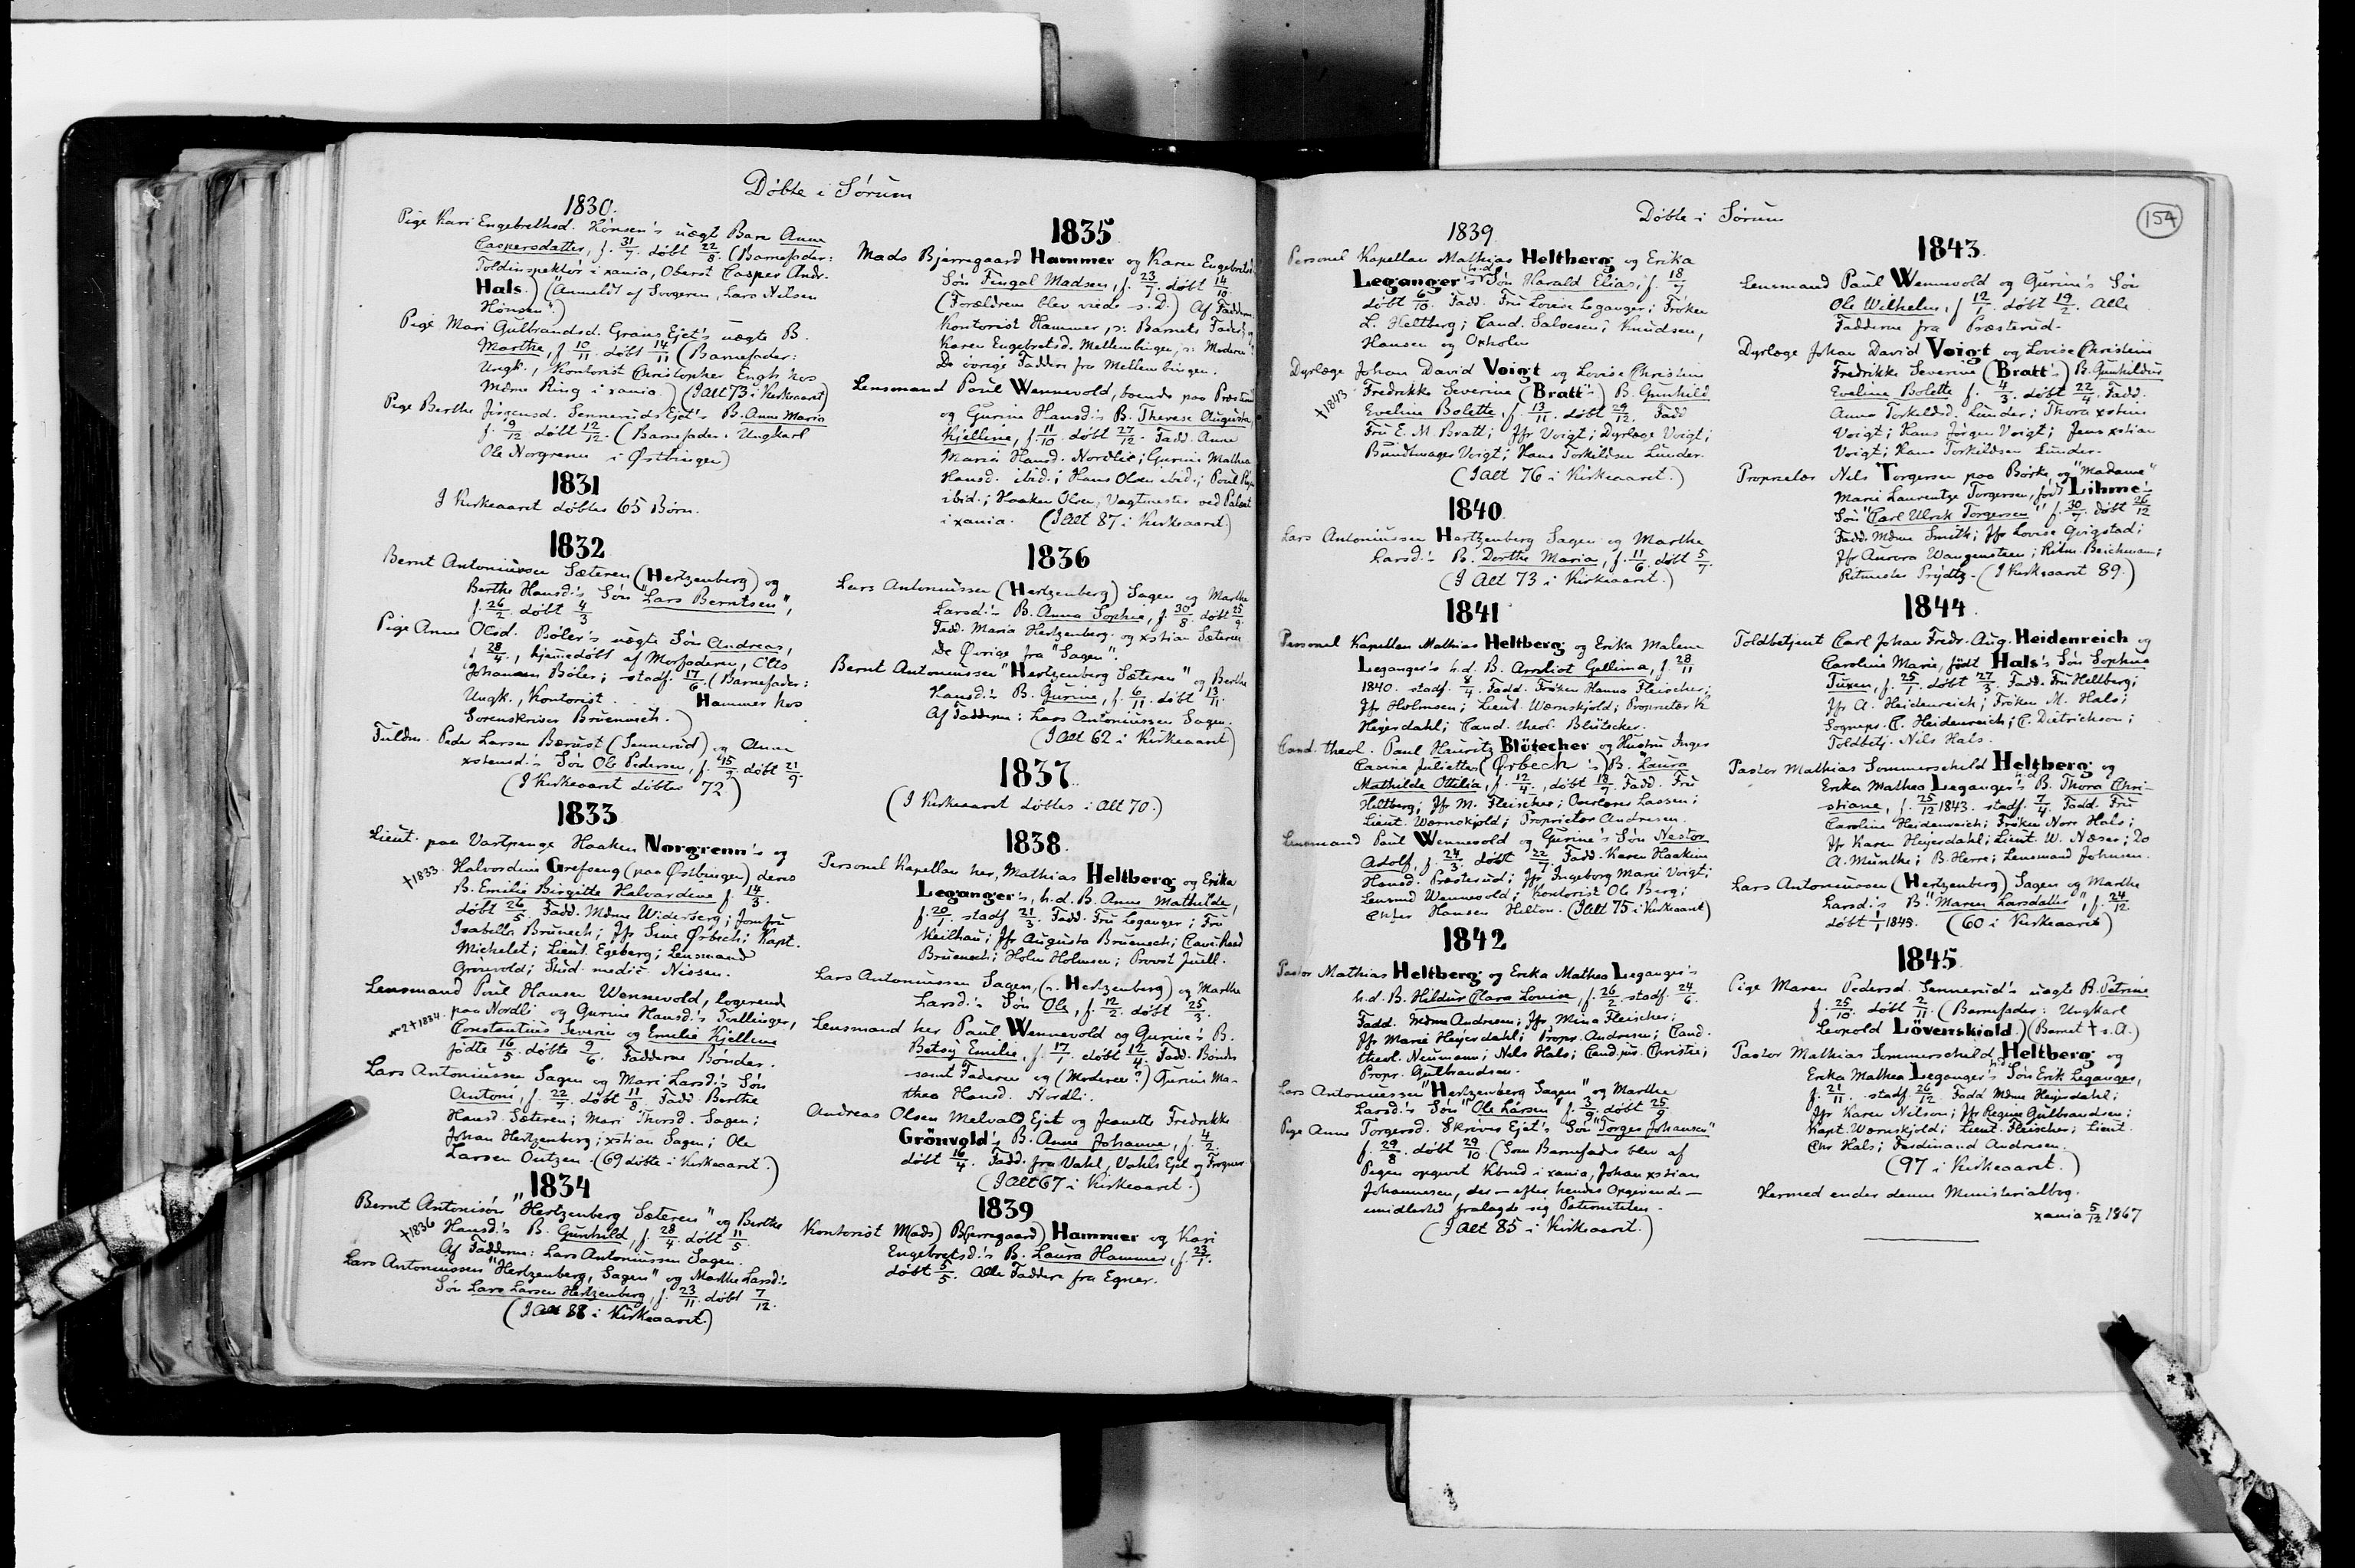 Döbte i Sörum
1830.
Pige Kari Engebrethsd. Hönsen's uægt Barn Anne
Caspersdatter, f. 31/7. döbt 22/8. (Barnefader:
Toldinspektör i xania, Oberst Casper Andr.
Hals.) (Anmeldt af Svogeren, Lars Nilsen
Hönsen".)
Pige Mari Gulbrandsd. Graus Ejet's uægte B.
Marthe, f. 10/11. döbt 14/11 (Barnefader:
Ungk., Kontorist Christopher Engh hos
Mdme Ring i xania.) (Ialt 73 i Kirkeaaret)
Pige Berthe Jörgensd. Sennerud's Ejet's B. Anne Maria
f. 9/12 döbt 12/12. (Barnefader: Ungkarl
Ole Norgrenn i Østbingen)
1831
I Kirkeaaret döbtes 65 Börn.
1832
Bernt Antoniussen Sæteren (Hertzenberg) og
Berthe Hansd.'s Sön "Lars Berntsen",
f. 26/2 döbt 4/3
Pige Anne Olsd. Böler's uægte Sön Andreas,
f. 28/4., hjemmedöbt af Morfaderen, Ole
Johannesen Böler; stadf. 17/6. (Barnefader:
Ungk., Kontorist . . Hammer hos
Sorenskriver Bruenech.)
Fuldm. Peder Larsen Bærust (Sennerud) og Anne
xstensd.'s Sön Ole Pedersen, f. 15/9 döbt 21/9
(I Kirkeaaret döbtes 72.)
1833
Lieut. paa Vartpenge Haaken Norgrenn's og
†1833. Halvordine Grefseng (paa Østbingen) deres
B. Emilie Birgitte Halvardine f. 14/3.
döbt 26/5. Fadd. Mdme Widerberg; Jomfru
Isabella Brunech; Jfr Sine Ørbech; Kapt.
Michelet; Lieut. Egeberg; Lensmand
Grönvold; Stud. medic. Nissen.
Lensmand Poul Hansen Wennevold, logerende
№ 2 †1834. paa Nordli og Gurine Hansd.'s Tvillinger,
Constantius Severin og Emilie Kjelline
födte 16/5. döbte 9/6. Fadderne Bönder.
Lars Antoniussen Sagen og Mari Larsd.'s Sön
Antoni, f. 22/7. döbt 11/8. Fadd Berthe
Hansd. Sæteren; Mari Thorsd. Sagen;
Johan Hertzenberg; xstian Sagen; Ole
Larsen Ontzen. (69 döbte i Kirkeaaret.)
1834
Bernt Antonisön "Hertzenberg Sæteren" og Berthe
†1836 Hansd.'s B. Gunhild, f. 28/4. döbt 11/5.
Af Fadderne: Lars Antoniussen Sagen.
Lars Antoniussen "Hertzenberg, Sagen" og Marthe Larsd.'s
Sön Lars Larsen Hertzenberg, f. 23/11. döbt 7/12.
(I Alt 88 i Kirkeaaret.)
1835
Mads Bjerregaard Hammer og Karen Engebretsd.
Sön Fingal Madsen, f. 23/7. döbt 14/10
(Forældrene blev viede s. D.) Af Fadderne
Kontorist Hammer, ɔ: Barnets Fader, og
Karen Engebretsd. Mellembingen, ɔ: Moderen!
De övrige Faddere fra Mellembingen.
Lensmand Paul Wennevold, boende paa Præsterud
og Gurine Hansd.'s B. Therese Augusta
Kjelline, f. 11/10. döbt 27/12. Fadd. Anne
Maria Hansd. Nordlie; Gurine Mathea
Hansd. ibid.; Hans Olsen ibid.; Poul
ibid.; Haaken Olsen, Vagtmester ved Palæet
i xania. (I Alt 87 i Kirkeaaret.)
1836
Lars Antoniussen (Hertzenberg) Sagen og Marthe
Larsd.'s B. Anna Sophie, f. 30/8. döbt 25/9.
Fadd. Maria Hertzenberg. og xstian Sæteren
De Øvrige fra "Sagen".
Bernt Antoniussen "Hertzenberg Sæteren" og Berthe
Hansd.'s B. Gurine, f. 6/11. döbt 13/11.
Af Fadderne: Lars Antoniussen Sagen.
(I Alt 62 i Kirkeaaret)
1837.
(I Kirkeaaret döbtes i Alt 70.)
1838.
Personel Kapellan her, Mathias Heltberg og Erika
Leganger's, h.d. B. Anne Mathilde,
f. 20/1. stadf 21/3. Fadd. Fru Leganger; Fru
Keilhau; Jfr Augusta Bruenech; Cavi-Raad
Bruenech; Holm Holmsen; Provst Juell.
Lars Antoniussen Sagen, (ɔ: Hertzenberg) og Marthe
Larsd.'s Sön Ole, f. 12/2. döbt 25/3.
Lensmand her Paul Wennevold og Gurine's B.
Betsy Emilie, f. 17/1. döbt 12/4. Fadd. Bönder
samt Faderen og (Moderen?) Gurine Ma-
thea Hansd. Nordli.
Andreas Olsen Melvald Ejet og Jeanette Fredrikke
Grönvold's B. Anne Johanne, f. 4/2.
döbt 16/4. Fadd. fra Vahl, Vahls Ejet og Frogner
(I Alt 67 i Kirkeaaret.)
1839
Kontorist M(ads) B(jerregaard) Hammer og Kari
Engebretsd.'s B. Laura Hammer, f. 23/1.
döbt 5/5. Alle Faddere fra Egner.
Döbte i Sörum
154
1839.
Personel Kapellan Mathias Heltberg og Erika
Leganger's h.d. Sön Harald Elias, f. 18/7
döbt 6/10 Fadd. Fru Lovise Leganger; Fröken
L. Heltberg; Cand. Salvesen; Knudsen,
Hansen og Oxholm
Dyrlæge Johan David Voigt og Lovise Christine
†1843. Fredrikke Severine (Bratt's) B. Gunhild
Eveline Bolette, f. 13/11. döbt 29/12. Fadd
Fru E. M. Bratt; Jfr Voigt; Dyrlæge Voigt;
Bundtmager Voigt; Hans Torkildsen Lunder.
(I Alt 76 i Kirkeaaret.)
1840.
Lars Antoniussen Hertzenberg Sagen og Marthe
Larsd.'s B. Dorthe Maria, f. 11/6. döbt 5/7.
(I Alt 73 i Kirkeaaret.)
1841
Personel Kapellan Mathias Heltberg og Erika Malene
Leganger's h.d. B. Arnliot Gellina, f. 28/11
1840. stadf. 8/4. Fadd. Fröken Hanna Fleischer;
Jfr Holmsen; Lieut. Wærnskjold; Proprietær K
Heyerdahl; Cand. theol. Blütecher.
Cand. theol. Paul Hauritz Blütecher og Hustru Inger
Cavine Juliette (Ørbech's) B. Laura
Mathilde Ottilia, f. 12/4., döbt 18/7. Fadd. Fru
Heltberg; Jfr M. Fleischer; Overlærer Lassen;
Lieut. Wærnskjold; Proprietær Andresen.
Lensmand Paul Wennevold og Gurine's Sön Nestor
Adolf, f. 24/3. döbt 22/7. Fadd. Karen Haakens
Hansd. Præsterud; Jfr Ingeborg Marie Voigt;
Lensmd Wennevold; Kontorist Ole Berg;
Enker Hansen Hilton. (I Alt 75 i Kirkeaaret)
1842
Pastor Mathias Heltberg og Erika Mathea Leganger's
h.d. B. Hildur Clara Louise, f. 26/2 stadf. 24/6.
Fadd. Mdme Andresen; Jfr Mina Fleischer;
Jfr Marie Heyerdahl; Propr. Andresen; Cand.
theol. Neumann; Nils Hals; Cand. jur. Christie;
Propr. Gulbrandsen.
Lars Antoniussen "Hertzenberg Sagen" og Marthe
Larsd.'s Sön "Ole Larsen" f. 3/9. döbt 25/9
Pige Anne Torgersd. Skrives Ejet's Sön "Torger Johansen"
f. 29/8. döbt 29/10. (Som Barnefader blev af
Pigen opgivet Kbmd i xania, Johan xstian
Johannesen, der — efter hendes Opgivende —
imidlertid fralagde sig Paterniteten.
(I Alt 85 i Kirkeaaret.)
1843.
Lensmand Paul Wennevold og Gurine's Sön
Ole Wilhelm, f. 12/1. döbt 19/2. Alle
Fadderne fra Præsterud.
Dyrlæge Johan David Voigt og Lovise Christine
Fredrikke Severine (Bratt's) B. Gunhildur
Eveline Bolette f. 4/3. döbt 22/4. Fadd.
Anne Torkeldsd. Lunder; Thora xstine
Voigt; Hans Jörgen Voigt; Jens xstian
Voigt; Hans Torkildsen Lunder.
Proprietær Nils Torgersen paa Börke og "Madame"
Marie Laurentze Torgersen, födt Lihme's
Sön "Carl Ulrik Torgersen" f. 30/7. döbt 26/12
Fadd. Mdme Smith; Jfr Lovise Qvigstad;
Jfr Aurora Wangensteen; Ritm. Beichmann;
Ritmester Prydtz. (I Kirkeaaret 89.)
1844.
Toldbetjent Carl Johan Fredr. Aug. Heidenreich og
Caroline Marie, födt Hals's Sön Sophus
Tuxen, f. 25/1. döbt 27/3. Fadd. Fru Heltberg;
Jfr A. Heidenreich; Fröken M. Hals;
Sognepr. C. Heidenreich; C. Dietrichson;
Toldbetj. Nils Hals.
Pastor Mathias Sommerscheld Heltberg og
Erika Mathea Leganger's h.d. B. Thora Chri-
stiane, f. 25/12 1843. stadf. 7/4. Fadd. Fru
Caroline Heidenreich; Fröken Nore Hals;
Jfr Karen Heyerdahl; Lieut. W. Næser; Do
A. Munthe; B. Herre; Lensmand Johnsen.
Lars Antoniussen (Hertzenberg) Sagen og Marthe
Larsd.'s B. "Maren Larsdatter", f. 24/12.
döbt 1/1 1845. (60 i Kirkeaaret)
1845.
Pige Maren Pedersd. Sennerud's uægte B. Petrine
f. 25/10. döbt 2/11. (Barnefader: Ungkarl
Leopold Lövenskiold.) (Barnet † s. A.)
Pastor Mathias Sommerscheld Heltberg og
Erika Mathea Leganger's h.d. Sön Erik Leganger,
f. 21/11. stadf. 26/12 Fadd Mdme Heyerdahl;
Jfr Karen Nilson; Jfr Regine Gulbrandsen;
Kapt. Wærnskjold; Lieut. Fleischer; Lieut.
Chr Hals; Ferdinand Andresen.
(97 i Kirkeaaret.)
Hermed ender denne Ministerialbog.
xania 5/12 1867